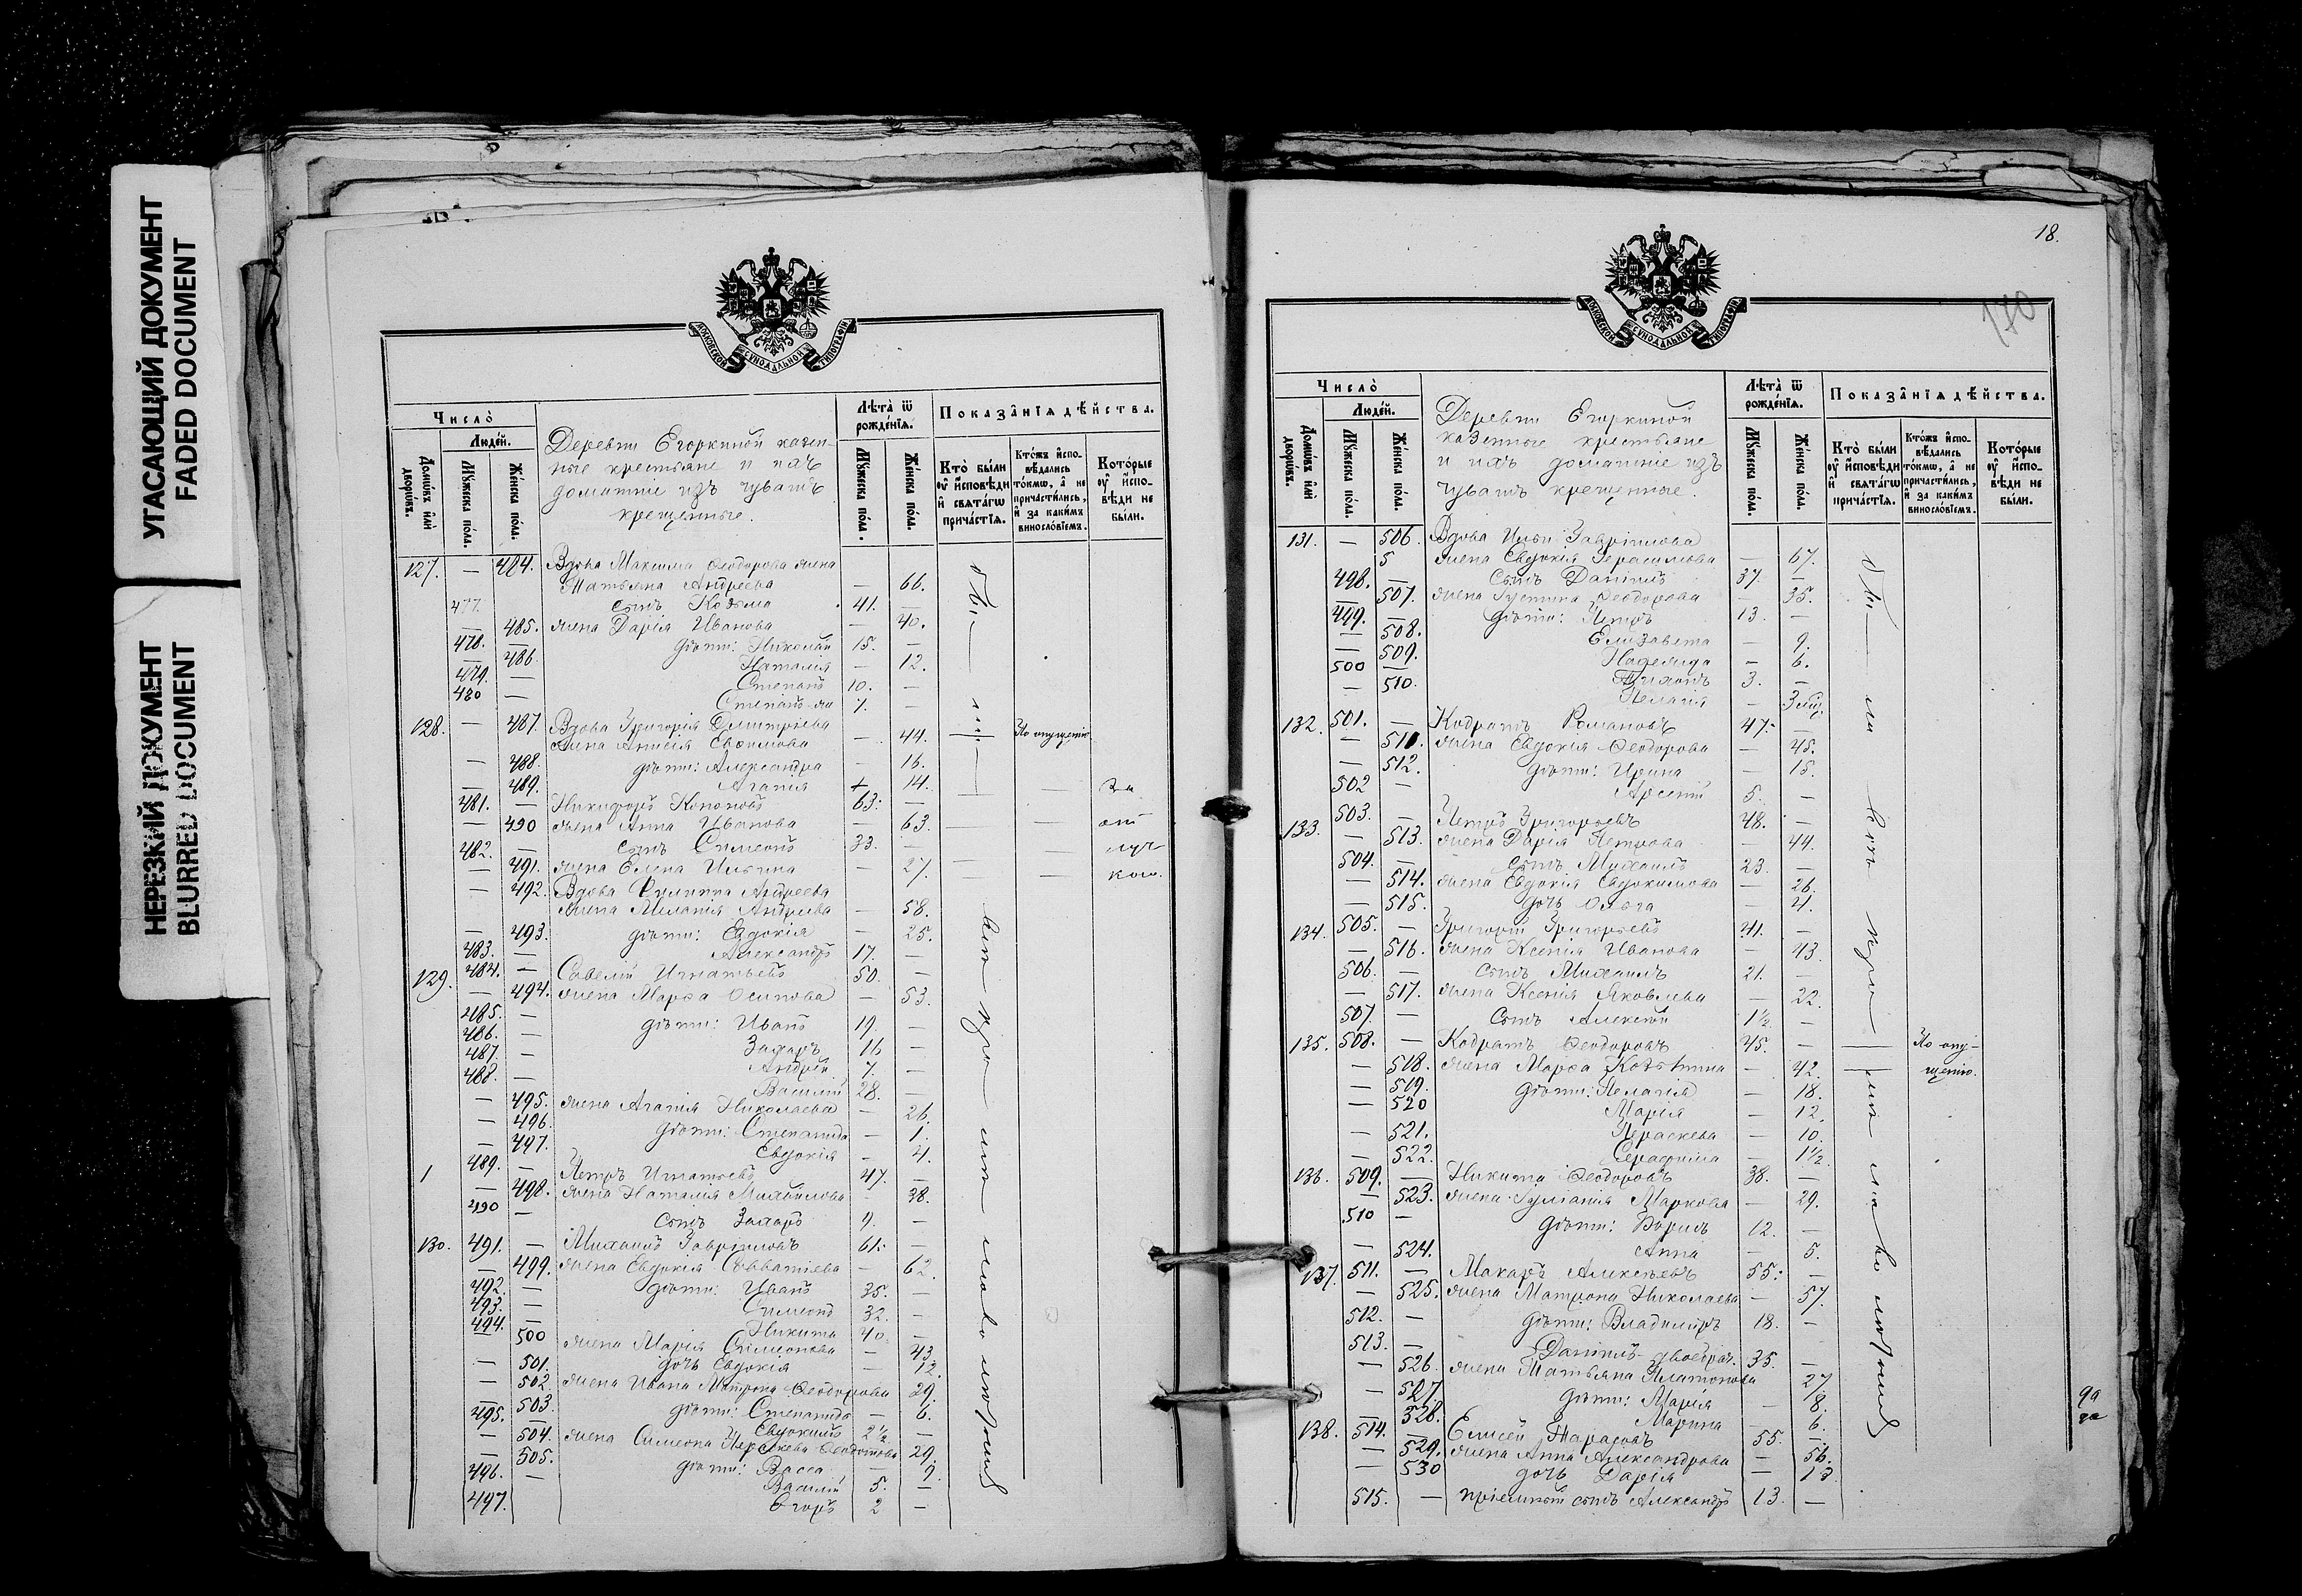 УГАСАЮЩИЙ ДОКУМЕНТ
FADED DOCUMENT
НЕРЕЗКИЙ ДОКУМЕНТ
BLURRED DOCUMENT
МОСКОВСКОЙ СѴНОДАЛЬНОЙ ТИПОГРАФІИ
Число̀
Людей.
Домѡвъ илѝ дворѡвъ.
Мꙋжеска пола.
Женска пола.
Деревни Егоркиной казен-
ные крестьяне и ихъ
домашніе изъ чувашъ
крещенные.
Лѣта ѿ рожденія.
Мꙋжеска пола.
Женска пола.
Показанія дѣйства.
Кто̀ были ᲂу҆ исповѣди и свѧтагѡ причастїѧ.
Ктожъ исповѣдались токмѡ, а не причастились, и за какимъ винословїемъ.
Которые ᲂу҆ исповѣди не были.
127. — 484. Вдова Максима Ѳеодорова жена
Татьяна Андреева — 66.
477. сынъ Козьма 41. —
— 485. жена Дарія Иванова — 40.
478. — дѣти: Николай 15. —
— 486. Наталія — 12.
479. — Степанъ 10. —
480 — Степанъ 7. —
128. — 487. Вдова Григорія Димитріева
жена Анисія Евѳимова — 44. По опущенію
— 488. дѣти: Александра — 16.
— 489. Агапія + 14. — — За
481. — Никифоръ Кононовъ 63. —
— 490 жена Анна Иванова — 63. — — от
482. — сынъ Симеонъ 33. — луч
— 491. жена Елена Ильина — 27. — — кою.
— 492. Вдова Андреева
жена Меланія Андреева — 58.
— 493. дѣти: Евдокія — 25.
483. — Александръ 17. —
129. 484. — Савелій Игнатьевъ 50. —
— 494. жена Марѳа Осипова — 53.
485. — дѣти: Иванъ 19. —
486. — Захаръ 16 —
487. — Андрей 7. —
488. — Василій 28. —
— 495. жена Агапія Николаева — 26.
— 496. дѣти: Степанида — 1.
— 497. Евдокія — 4.
1 489. — Петръ Игнатьевъ 47. —
— 498. жена Наталія Михайлова — 38.
490 — сынъ Захаръ 9. —
130. 491. — Михаилъ Гавріиловъ 61. —
— 499. жена Евдокія Савватіева — 62.
492. — дѣти: Иванъ 35. —
493. — Симеонъ 32. —
494. — Никита 40. —
500 жена Марія Симеонова — 43.
— 501. дочь Евдокія — 12.
— 502 жена Ивана Матрона Ѳеодорова 29.
— 503 дѣти: Степанида — 6.
495. — Евдокимъ 2½ —
— 504. жена Симеона Параскева 29.
— 505. дѣти: Васса — 9.
496. — Василій 5. —
497. Егоръ 2 —
18.
170
МОСКОВСКОЙ СѴНОДАЛЬНОЙ ТИПОГРАФІИ
Число̀
Людей.
Домѡвъ илѝ дворѡвъ.
Мꙋжеска пола.
Женска пола.
Деревни Егоркиной
казенные крестьяне
и ихъ домашніе изъ
чувашъ крещенные.
Лѣта ѿ рожденія.
Мꙋжеска пола.
Женска пола.
Показанія дѣйства.
Кто̀ были ᲂу҆ исповѣди и свѧтагѡ причастїѧ.
Ктожъ исповѣдались токмѡ, а не причастились, и за какимъ винословїемъ.
Которые ᲂу҆ исповѣди не были.
131. — 506. Вдова Ильи Гавріилова
жена Евдокія Герасимова — 67.
498. — сынъ Даніилъ 37. —
507. жена Іустина Ѳеодорова — 35.
499. — дѣти: Петръ 13. —
— 508. Елизавета — 9.
— 509. Надежда — 6.
500 — Тихонъ 3. —
— 510. Пелагія — 3 мѣс.
132. 501. — Кодратъ Романовъ 47. —
— 511. жена Евдокія Ѳеодорова — 45.
— 512. дѣти: Ирина — 15.
502 — Арсеній 5. —
133. 503. — Петръ Григорьевъ 48. —
— 513. жена Дарія Петрова — 44.
504. — сынъ Михаилъ 23. —
— 514. жена Евдокія Евдокимова — 26.
— 515. дочь Ольга — 4.
134. 505. — Григорій Григорьевъ 41. —
— 516. жена Ксенія Иванова — 43.
506. — сынъ Михаилъ 21. —
— 517. жена Ксенія Яковлева — 22.
507. — сынъ Алексѣй 1½ —
135. 508. — Кодратъ Ѳеодоровъ 45. — По опу-
— 518. жена Марѳа Козьмина — 42. щенію.
— 519. дѣти: Пелагія — 18.
— 520 Марія — 12.
— 521. Параскева — 10.
— 522. Серафима — 1½
136. 509. — Никита Ѳеодоровъ 38. —
— 523. жена Іуліанія Маркова — 29.
510 — дѣти: Борисъ 12. —
— 524. Анна — 5.
137. 511. — Макаръ Алексѣевъ 55. —
— 525. жена Матрона Николаева — 57.
512. — дѣти: Владиміръ 18. —
513. — Даніилъ двоебрач. 35. —
— 526. жена Татьяна Платонова 27
— 527. дѣти: Марія — 8.
528. Марина — 6.
138. 514. — Елисей Тарасовъ 55. —
— 529. жена Анна Александрова — 56.
— 530 дочь Дарія — 13
515. — пріемный сынъ Александръ 13. —